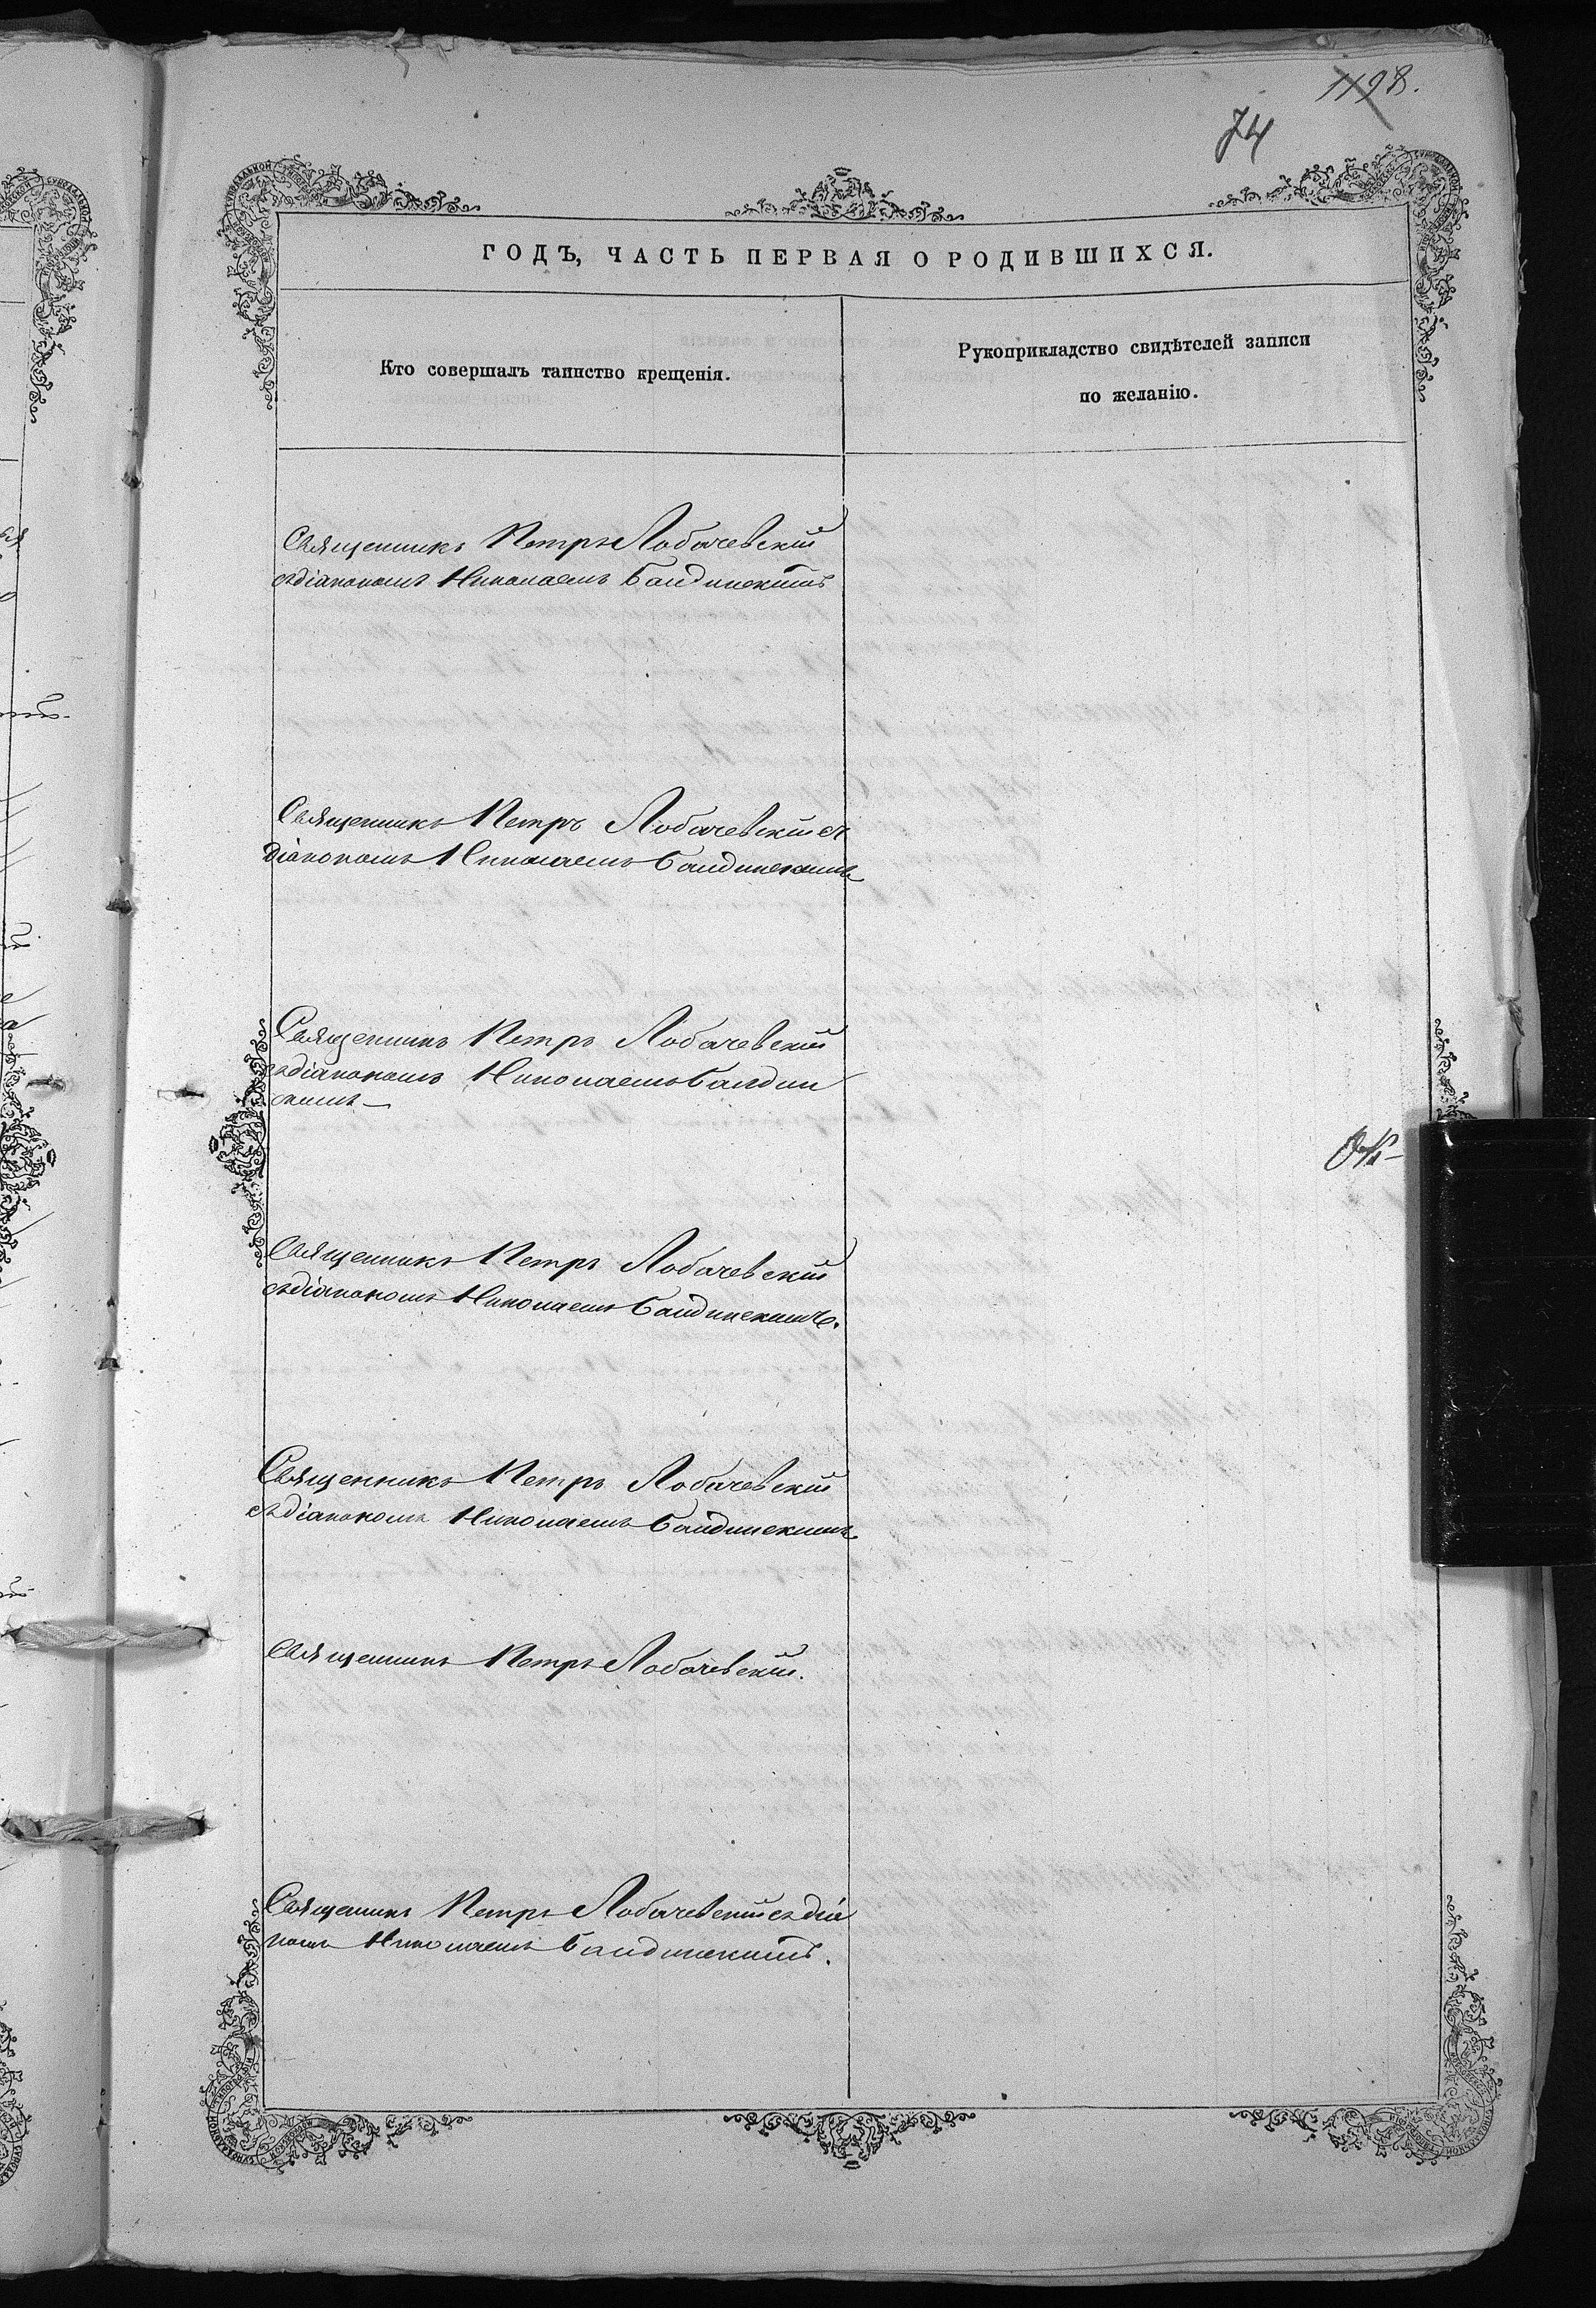 1198.
74
ГОДЪ, ЧАСТЬ ПЕРВАЯ О РОДИВШИХСЯ.
Кто совершалъ таинство крещенія.
Рукоприкладство свидѣтелей записи
по желанію.
Священникъ Петръ Лобачевскій
съ діакономъ Николаемъ Балдинскимъ
Священникъ Петръ Лобачевскій съ
діакономъ Николаемъ Балдинскимъ
Священникъ Петръ Лобачевскій
съ діакономъ Николаемъ Балдин
скимъ
Священникъ Петръ Лобачевскій
съ діакономъ Николаемъ Балдинскимъ.
Священникъ Петръ Лобачевскій
съ діакономъ Николаемъ Балдинскимъ
Священникъ Петръ Лобачевскій.
Священникъ Петръ Лобачевскій съ діа
номъ Николаемъ Балдинскимъ.